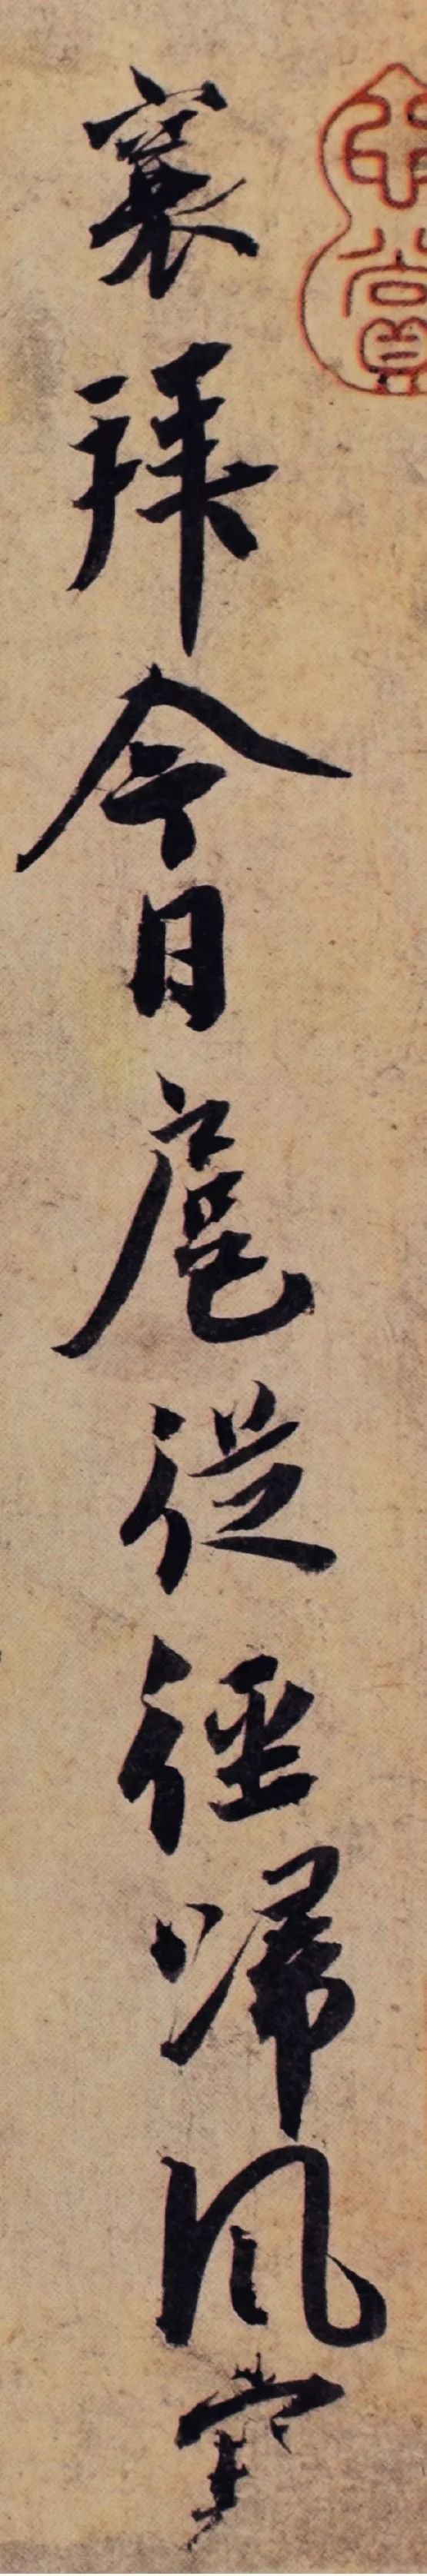 心賞
襄拜今日扈從徑歸風寒